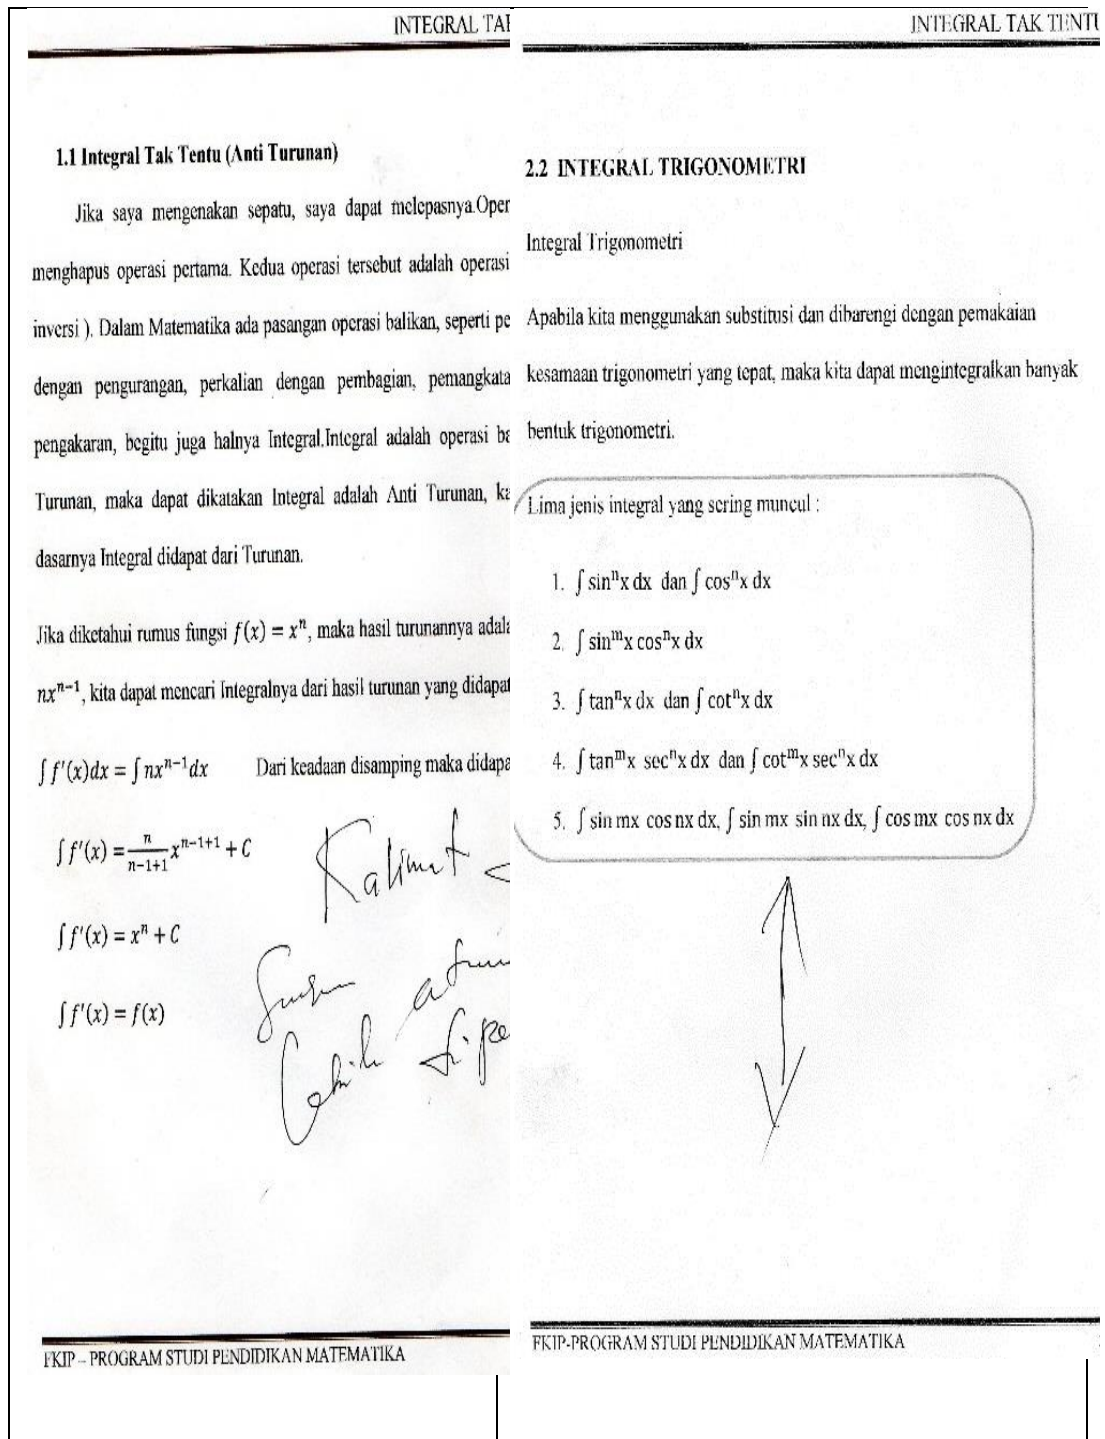 INTEGRAL TA
1.1 Integral Tak Tentu (Anti Turunan)
Jika saya mengenakan sepatu, saya dapat melepasnya.Oper
menghapus operasi pertama. Kedua operasi tersebut adalah operasi
inversi ). Dalam Matematika ada pasangan operasi balikan, seperti pe
dengan pengurangan, perkalian dengan pembagian, pemangkata
pengakaran, begitu juga halnya Integral.Integral adalah operasi ba
Turunan, maka dapat dikatakan Integral adalah Anti Turunan, ka
dasarnya Integral didapat dari Turunan.
Jika diketahui rumus fungsi f(x) = xⁿ, maka hasil turunannya adala
nxⁿ⁻¹, kita dapat mencari Integralnya dari hasil turunan yang didapat
∫ f'(x)dx = ∫ nxⁿ⁻¹dx Dari keadaan disamping maka didapa
∫ f'(x) = n/(n−1+1) xⁿ⁻¹⁺¹ + C
∫ f'(x) = xⁿ + C
∫ f'(x) = f(x)
Kalimat
FKIP – PROGRAM STUDI PENDIDIKAN MATEMATIKA
INTEGRAL TAK TENTU
2.2 INTEGRAL TRIGONOMETRI
Integral Trigonometri
Apabila kita menggunakan substitusi dan dibarengi dengan pemakaian
kesamaan trigonometri yang tepat, maka kita dapat mengintegralkan banyak
bentuk trigonometri.
Lima jenis integral yang sering muncul :
1. ∫ sinⁿx dx dan ∫ cosⁿx dx
2. ∫ sinᵐx cosⁿx dx
3. ∫ tanⁿx dx dan ∫ cotⁿx dx
4. ∫ tanᵐx secⁿx dx dan ∫ cotᵐx secⁿx dx
5. ∫ sin mx cos nx dx, ∫ sin mx sin nx dx, ∫ cos mx cos nx dx
FKIP-PROGRAM STUDI PENDIDIKAN MATEMATIKA